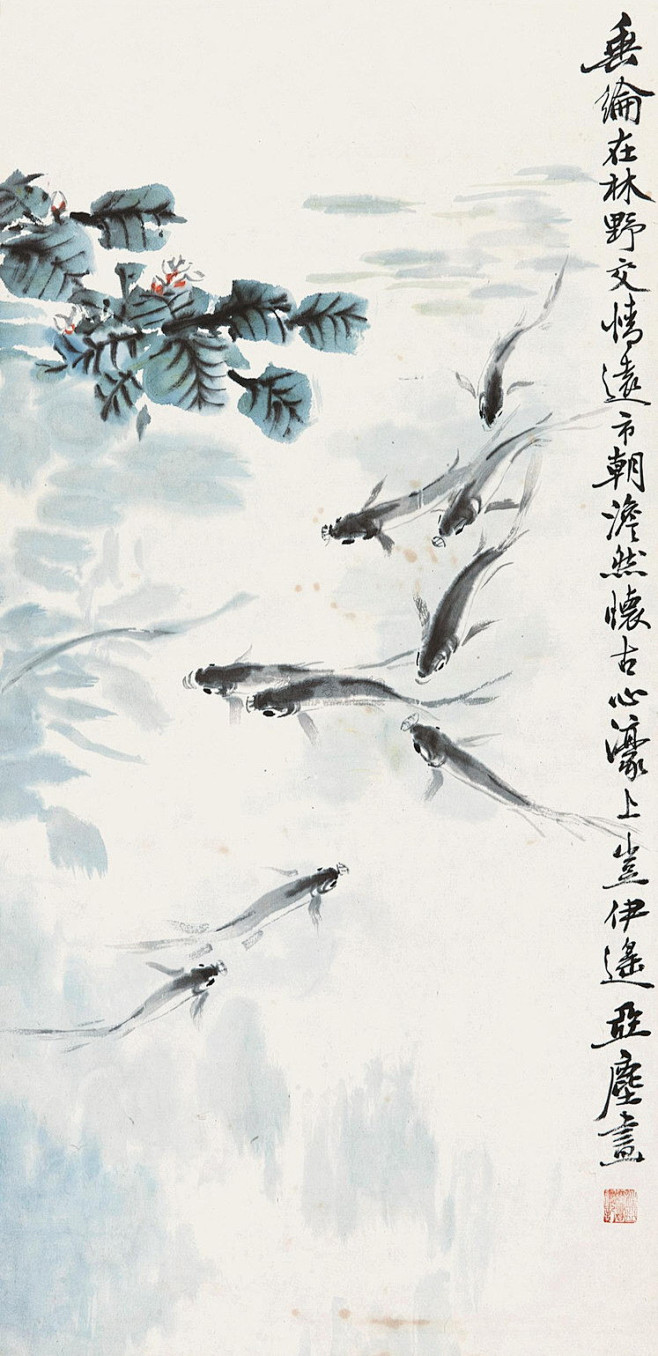 垂綸在林野交情遠市朝澹然懷古心濠上豈伊遙亞塵畫